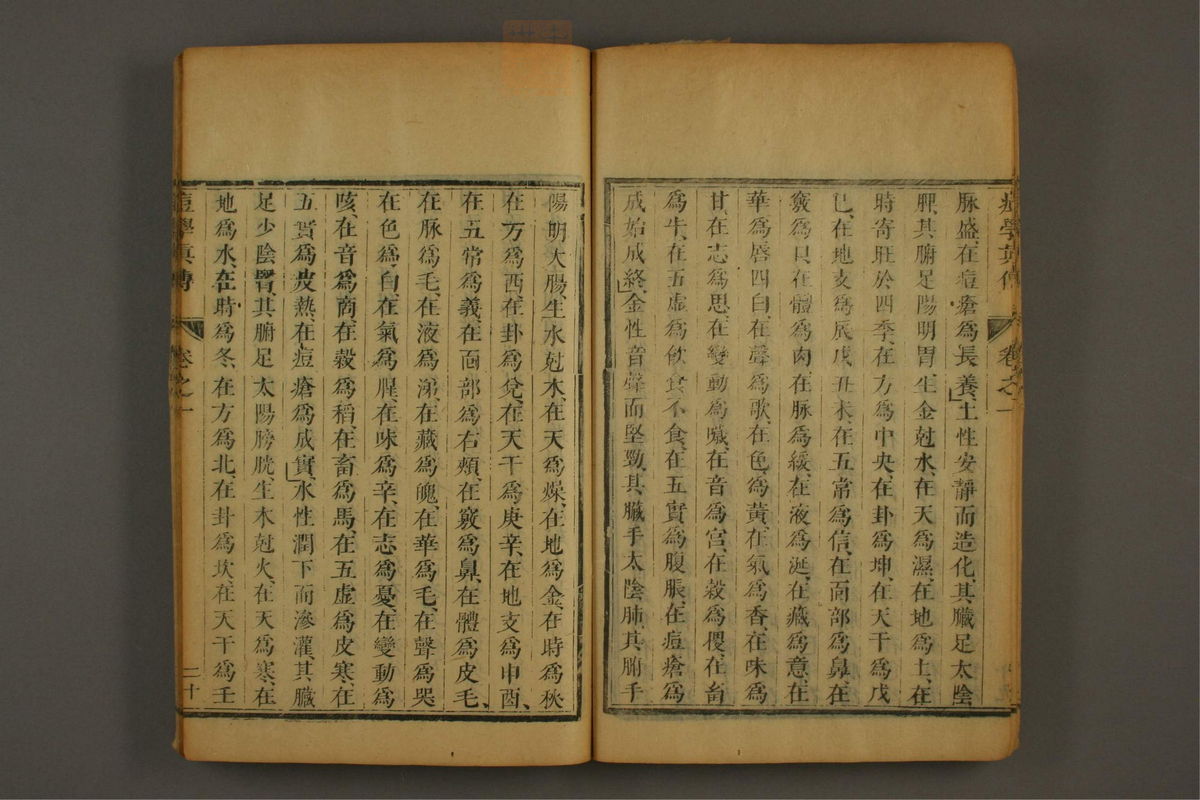 痘學真傳 卷之一
脉盛、在痘瘡爲長養、土性安靜而造化、其臟足太陰
脾、其腑足陽明胃、生金尅水、在天爲濕、在地爲土、在
時寄旺於四季、在方爲中央、在卦爲坤、在天干爲戊
己、在地支爲辰戌丑未、在五常爲信、在面部爲鼻、在
竅爲口、在體爲肉、在脉爲緩、在液爲涎、在藏爲意、在
華爲唇四白、在聲爲歌、在色爲黃、在氣爲香、在味爲
甘、在志爲思、在變動爲噦、在音爲宮、在穀爲稷、在畜
爲牛、在五虛爲飲食不食、在五實爲腹脹、在痘瘡爲
成始成終、金性音聲而堅勁、其臟手太陰肺、其腑手
陽明大腸、生水尅木、在天爲燥、在地爲金、在時爲秋
在方爲西、在卦爲兌、在天干爲庚辛、在地支爲申酉、
在五常爲義、在面部爲右頰、在竅爲鼻、在體爲皮毛、
在脉爲毛、在液爲涕、在藏爲魄、在華爲毛、在聲爲哭
在色爲白、在氣爲腥、在味爲辛、在志爲憂、在變動爲
咳、在音爲商、在穀爲稻、在畜爲馬、在五虛爲皮寒、在
五實爲皮熱、在痘瘡爲成實、水性潤下而滲灌、其臟
足少陰腎、其腑足太陽膀胱、生木尅火、在天爲寒、在
地爲水、在時爲冬、在方爲北、在卦爲坎、在天干爲壬
痘學真傳 卷之一 二十